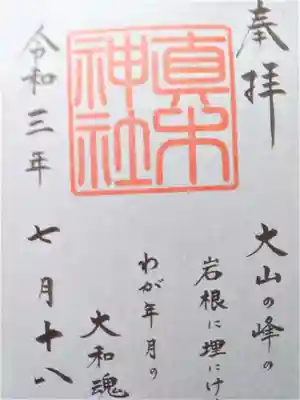 奉拝
真木
神社
大山の峰の
岩根に埋にけ
わが年月の
大和魂
令和三年 七月十八